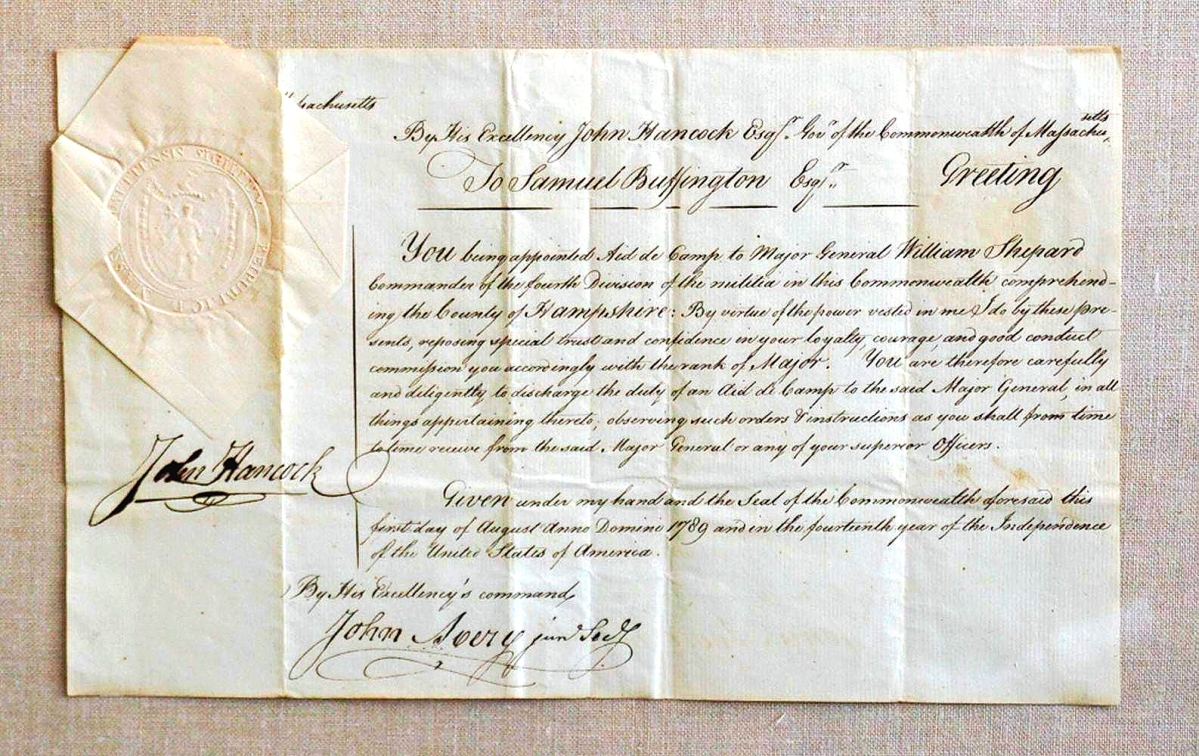 achusetts
By His Excellency John Hancock Esqr. Govr. of the Commonwealth of Massachusetts
To Samuel Buffington Esqr. Greeting
You being appointed Aid de Camp to Major General William Shepard
Commander of the fourth Division of the militia in this Commonwealth comprehend-
ing the County of Hampshire: By virtue of the power vested in me I do by these pre-
sents, reposing special trust and confidence in your loyalty, courage and good conduct
commission you accordingly with the rank of Major. You are therefore carefully
and diligently to discharge the duty of an Aid de Camp to the said Major General, in all
things appertaining thereto, observing such orders & instructions as you shall from time
to time receive from the said Major General or any of your superior Officers.
Given under my hand and the Seal of the Commonwealth aforesaid this
first day of August Anno Domini 1789 and in the fourteenth year of the Independence
of the United States of America.
John Hancock
By His Excellency's command
John Avery junr Secy